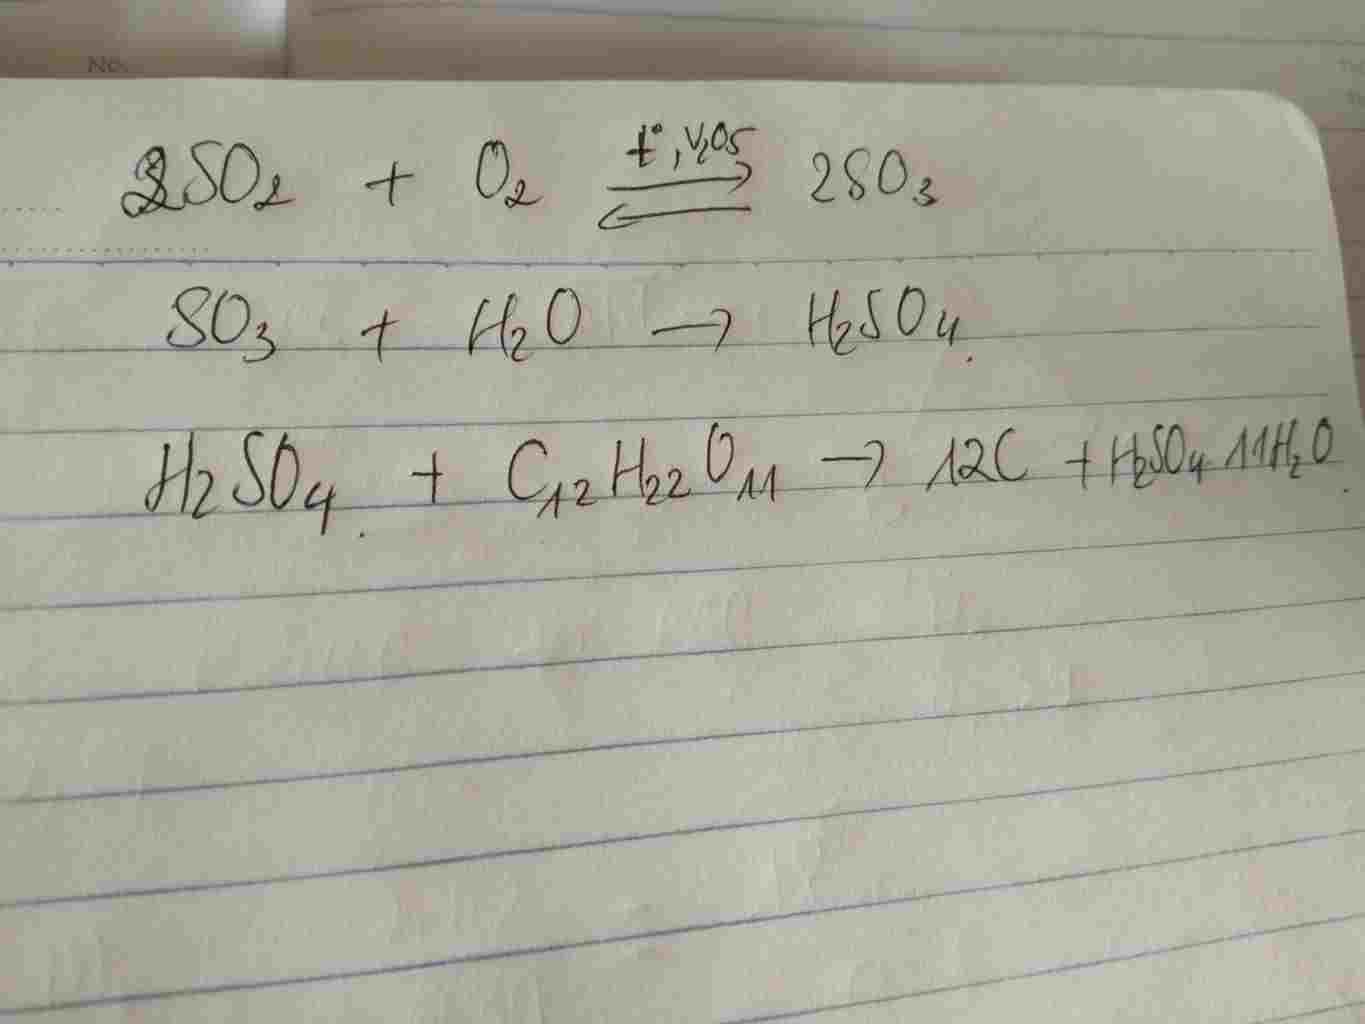 No.
2SO₂ + O₂ ⇌ t°, V₂O₅ 2SO₃
SO₃ + H₂O → H₂SO₄.
H₂SO₄. + C₁₂H₂₂O₁₁ → 12C + H₂SO₄ 11H₂O.